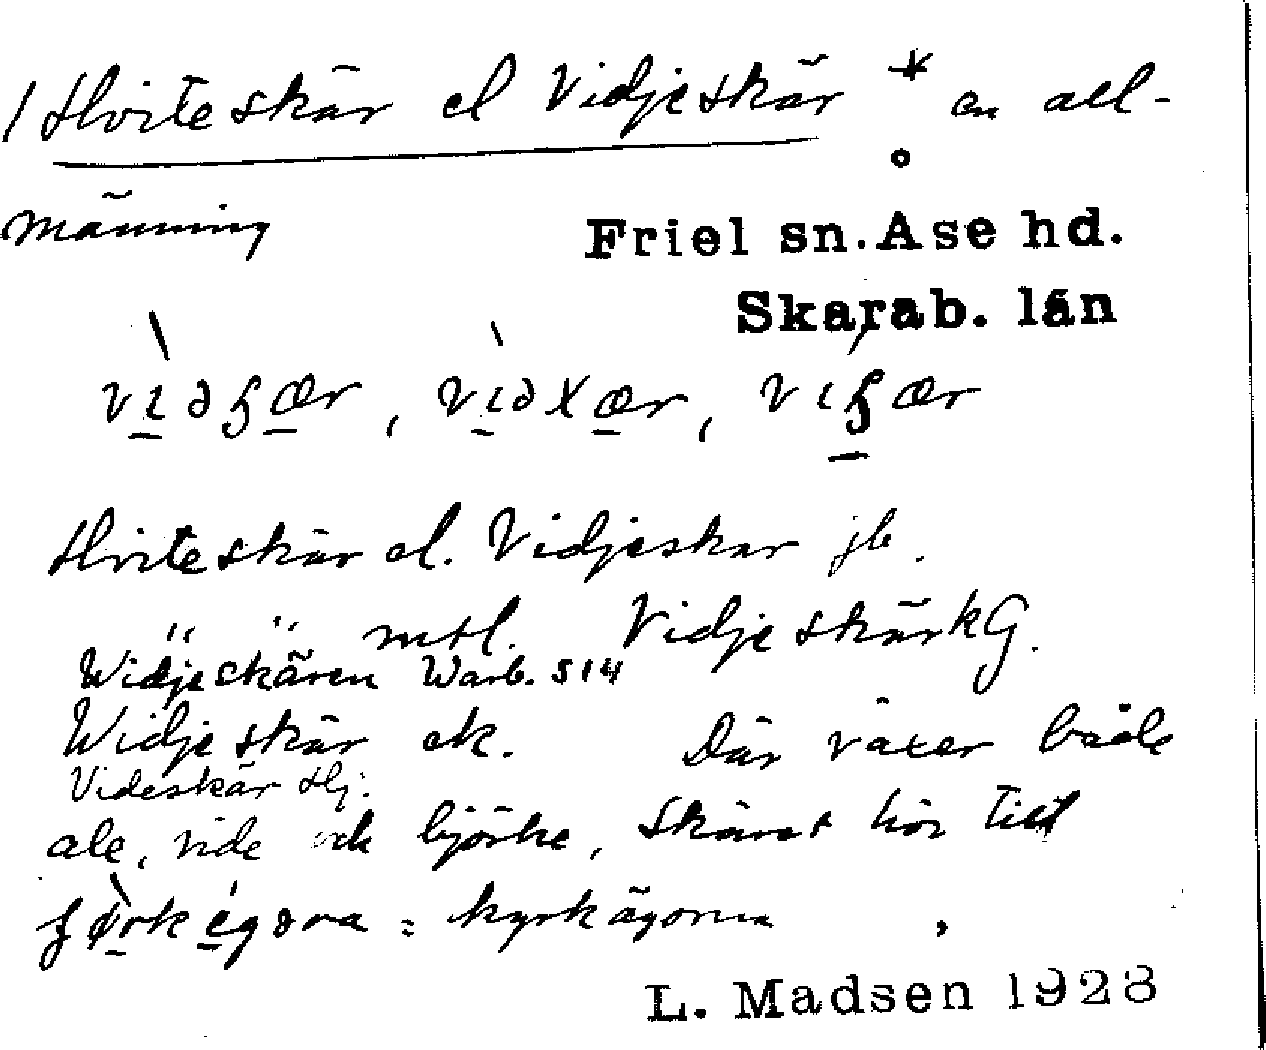 / Hviteskär el Vidjeskär * en all-
männing
Friel sn. Åse hd.
Skarab. län
vìdʒær, vìdxær, viʒær
Hviteskär el. Vidjeskär jb.
" " mtl. Vidjeskär kG.
Widjeskären Warb. S 14
Widjeskär ek. Där växer både
Videskär Hj.
ale, vide och björke, Skäret hör till
= kyrkägorna
L. Madsen 1928